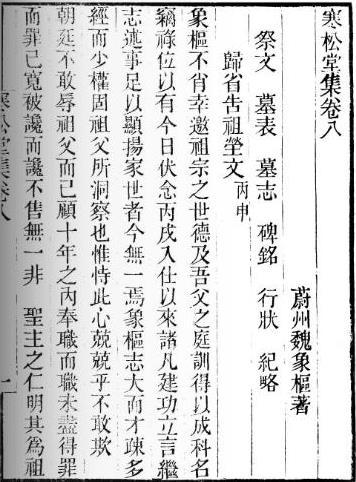 寒松堂集卷八
蔚州魏象樞著
祭文 墓表 墓志 碑銘 行狀 紀略
歸省告祖塋文 丙申
象樞不肖幸邀祖宗之世德及吾父之庭訓得以成科名
竊祿位以有今日伏念丙戌入仕以來諸凡建功立言繼
志述事足以顯揚家世者今無一焉象樞志大而才疎多
經而少權固祖父所洞察也惟恃此心兢兢乎不敢欺
朝廷不敢辱祖父而已顧十年之內奉職而職未盡得罪
而罪已寬被讒而讒不售無一非 聖主之仁明其為祖
寒松堂集卷八 一